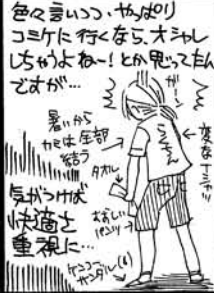 色々言いつつ、やっぱり
コミケに行くなら、オシャレ
しちゃうよねー!とか思ってたん
ですが…
ガーン
暑いから
カミは全部
結う
タオル
変なTシャツ
気がつけば
快適さ
重視に…